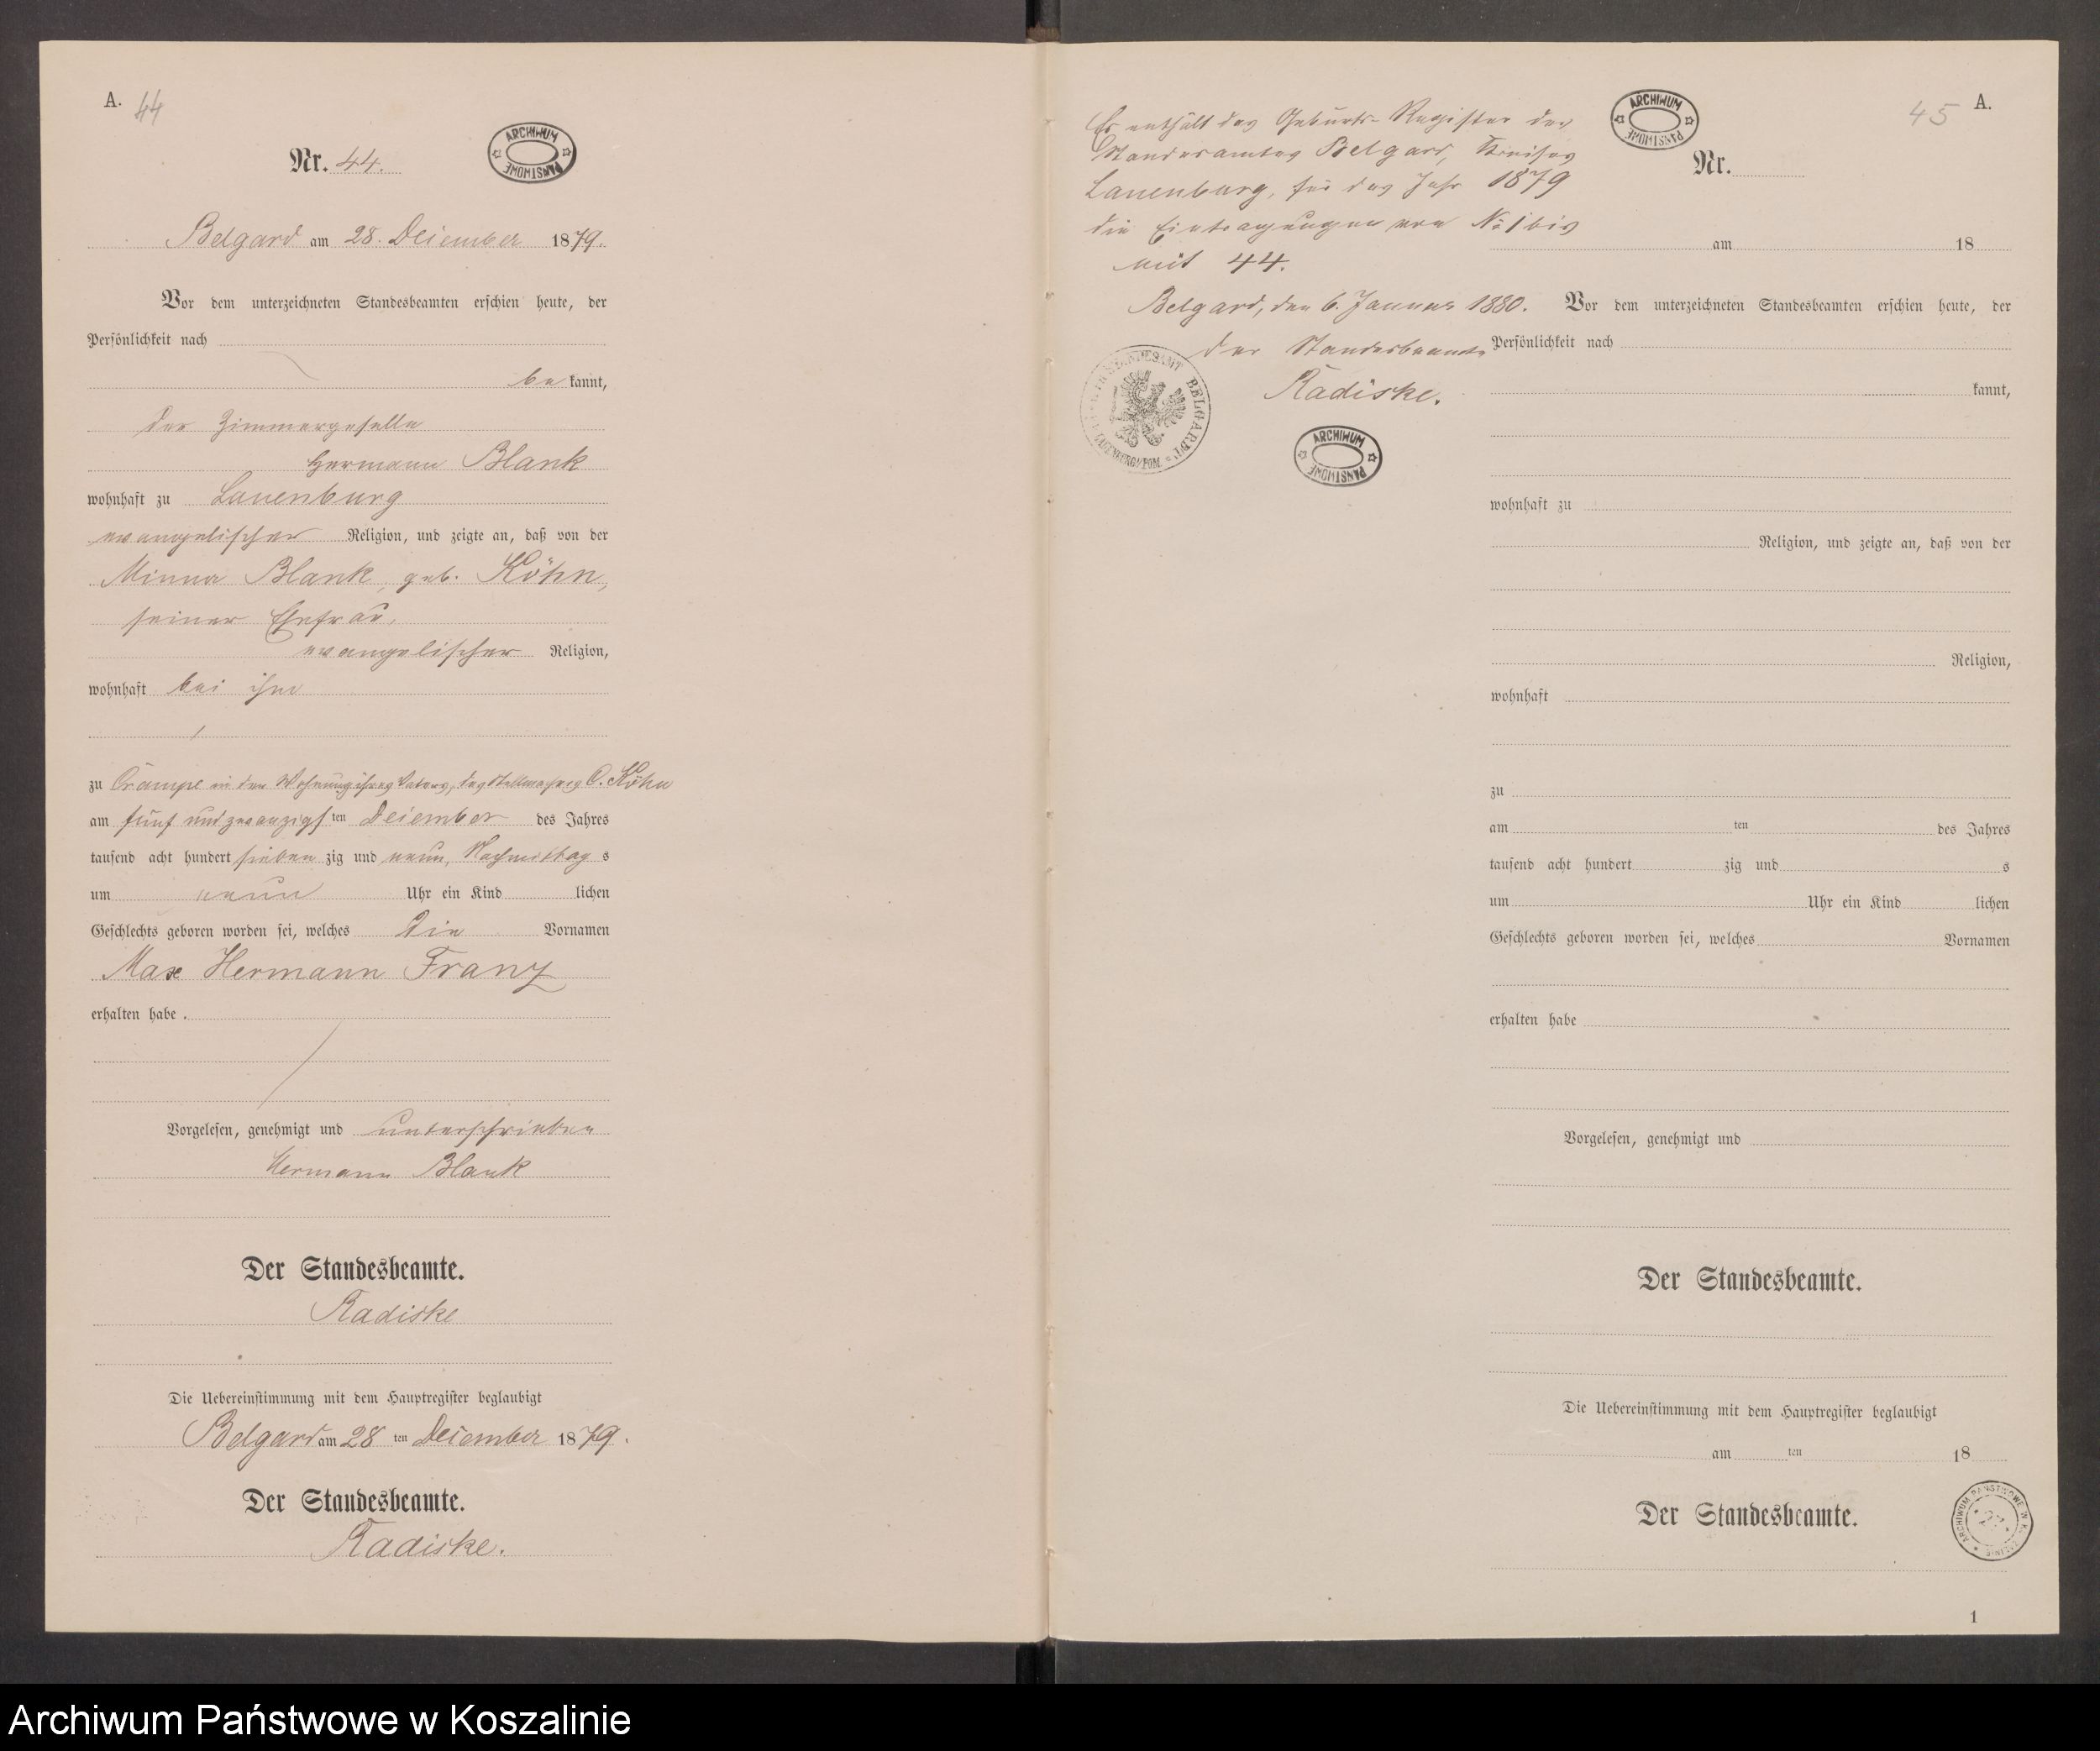 A. 44
ARCHIWUM PAŃSTWOWE
Nr. 44.
Belgard am 28. Dezember 1879.
Vor dem unterzeichneten Standesbeamten erschien heute, der
Persönlichkeit nach
be kannt,
der Zimmergeselle
Hermann Blank
wohnhaft zu Lauenburg
evangelischer Religion, und zeigte an, daß von der
Minna Blank, geb. Köhn,
seiner Ehefrau,
evangelischer Religion,
wohnhaft bei ihm
zu Crampe in der Wohnung ihres Vaters, des Stellmachers C. Köhn
am fünf und zwanzigsten Dezember des Jahres
tausend acht hundert sieben zig und neun, Nachmittag s
um neun Uhr ein Kind lichen
Geschlechts geboren worden sei, welches die Vornamen
Max Hermann Franz
erhalten habe.
Vorgelesen, genehmigt und unterschrieben
Hermann Blank
Der Standesbeamte.
Radiske
Die Uebereinstimmung mit dem Hauptregister beglaubigt
Belgard am 28 ten Dezember 1879.
Der Standesbeamte.
Radiske.
Es enthält das Geburts-Register des
Standesamtes Belgard, Kreises
Lauenburg, für das Jahr 1879
die Eintragungen von No 1 bis
mit 44.
Belgard, den 6. Januar 1880.
Der Standesbeamte
Radiske.
STANDESAMT BELGARD LAUENBURG i/POM
ARCHIWUM PAŃSTWOWE
ARCHIWUM PAŃSTWOWE
45 A.
Nr.
am 18
Vor dem unterzeichneten Standesbeamten erschien heute, der
Persönlichkeit nach
kannt,
wohnhaft zu
Religion, und zeigte an, daß von der
Religion,
wohnhaft
zu
am ten des Jahres
tausend acht hundert zig und s
um Uhr ein Kind lichen
Geschlechts geboren worden sei, welches Vornamen
erhalten habe
Vorgelesen, genehmigt und
Der Standesbeamte.
Die Uebereinstimmung mit dem Hauptregister beglaubigt
am ten 18
Der Standesbeamte.
ARCHIWUM PAŃSTWOWE W KOSZALINIE
1
Archiwum Państwowe w Koszalinie